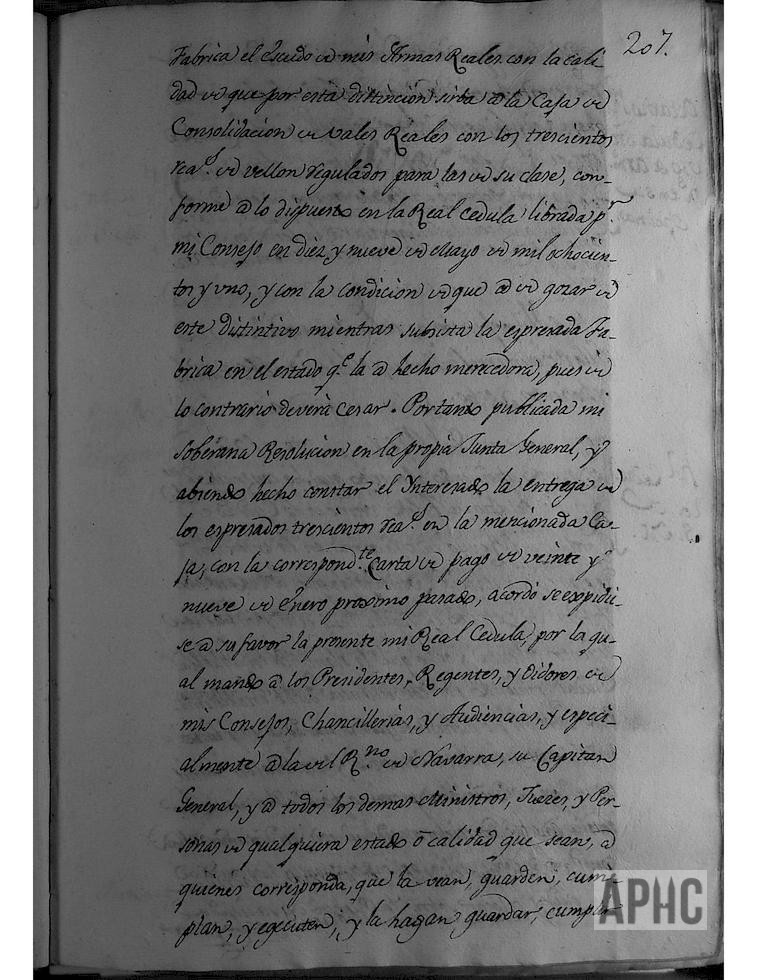 207.
Fabrica el Escudo de mis Armas Reales con la cali
dad de que por esta distincion sirba a la Caja de
Consolidacion de Vales Reales con los trescientos
rea.s de vellon regulados para las de su clase, con-
forme a lo dispuesto en la Real Cedula librada p.r
mi Consejo en diez y nueve de Mayo de mil ochocien-
tos y uno, y con la condicion de que a de gozar de
este distintivo mientras subsista la espresada Fa-
brica en el estado q.e la a hecho merecedora, pues de
lo contrario deverà cesar. Portanto publicada mi
Soberana Resolucion en la propia Junta General, y
abiendo hecho constar el Interesado la entrega de
los espresados trescientos rea.s en la mencionada Ca-
ja, con la correspond.te Carta de pago de veinte y
nueve de Enero proximo pasado, acordò se expidie-
se a su favor la presente mi Real Cedula, por la qu-
al mando a los Presidentes, Regentes, y Oidores de
mis Consejos, Chancillerias, y Audiencias, y especi-
almente a la del R.no de Navarra, su Capitan
General, y a todos los demas Ministros, Juezes, y Per-
sonas de qualquiera estado ò calidad que sean, a
quienes corresponda, que la vean, guarden, cum-
plan, y egecuten, y la hagan guardar, cumplir
APHC